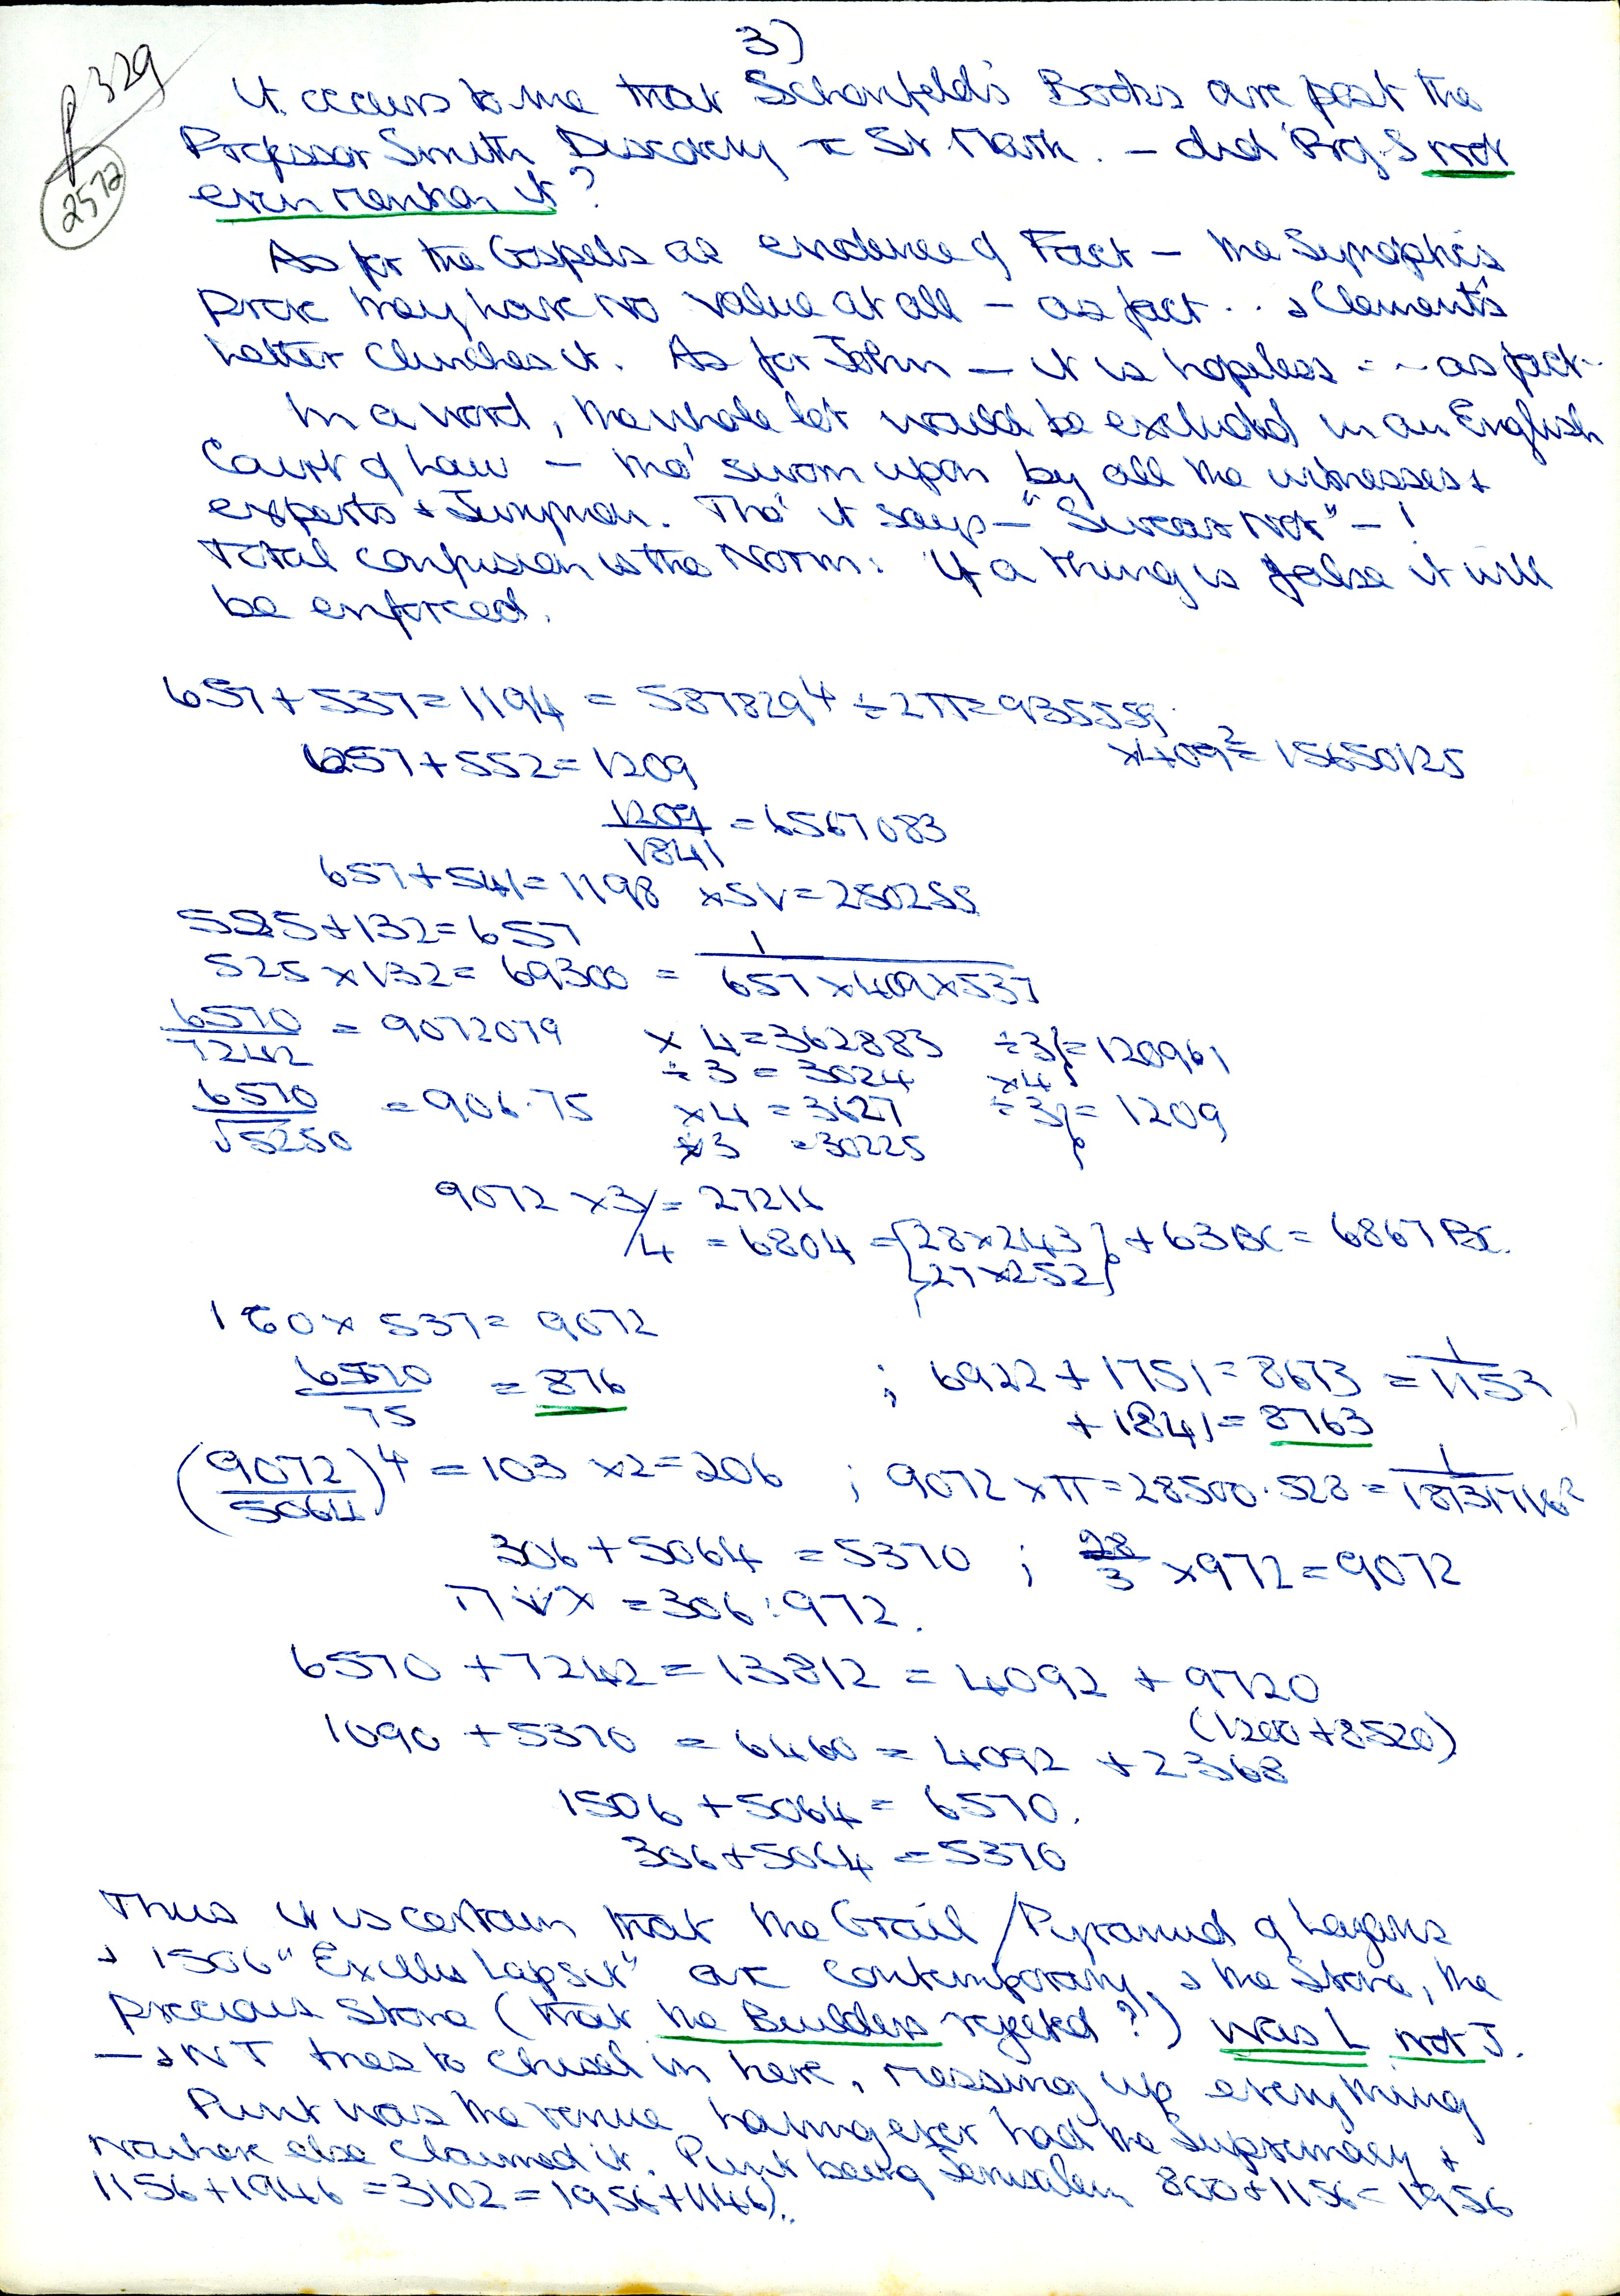 3)
P 329
2572
It occurs to me that Schonfeld's Books are post the
Professor Smith Discovery re St Mark. - did Prof. S not
even mention it?
As for the Gospels as evidence of Fact - the Synoptics
prove they have no value at all - as fact.. & Clement's
Letter clinches it. As for John - it is hopeless - as fact..
In a word, the whole lot would be excluded in an English
Court of Law - tho' sworn upon by all the witnesses +
experts + Jurymen. Tho' it says - "Swear Not" - !
Total confusion is the Norm: If a thing is false it will
be enforced.
657 + 537 = 1194 = 587829⁴ ÷ 2π = 935559
x 409² = 15650125
657 + 552 = 1209
1209/1841 = 6567083
657 + 541 = 1198 x 5√ = 250255
525 + 132 = 657
525 x 132 = 69300 = 1/657 x 409 x 537
6570/7242 = 9072079 x 4 = 362883 ÷ 3 } = 120961
÷ 3 = 3024 x 4 }
6570/√5250 = 906.75 x 4 = 3627 ÷ 3 } = 1209
÷ 3 = 30225
9072 x 3/4 = 27216
= 6804 = {28 x 243} + 63 BC = 6867 BC.
{27 x 252}
x 537 = 9072
6570/75 = 876 ; 6922 + 1751 = 8673 = 1/1153
+ 1841 = 8763
(9072/5064)⁴ = 103 x 2 = 206 ; 9072 x π = 28500.528 =
306 + 5064 = 5370 ; 28/3 x 972 = 9072
= 306 : 972.
6570 + 7242 = 13812 = 4092 + 9720
(1200 + 8520)
1090 + 5370 = 6460 = 4092 + 2368
1506 + 5064 = 6570.
306 + 5064 = 5370
Thus it is certain that the Grail / Pyramid of
& 1506 "Exillis Lapsit" are contemporary, & the Stone, the
precious Stone (that the Builders rejected?) was L not J.
- & NT tries to chisel in here, messing up everything
Punt was the venue having ever had the Supremacy +
Nowhere else claimed it. Punt being Jerusalem 800 + 1156 = 1956
1156 + 1946 = 3102 = 1956 + 1146)..